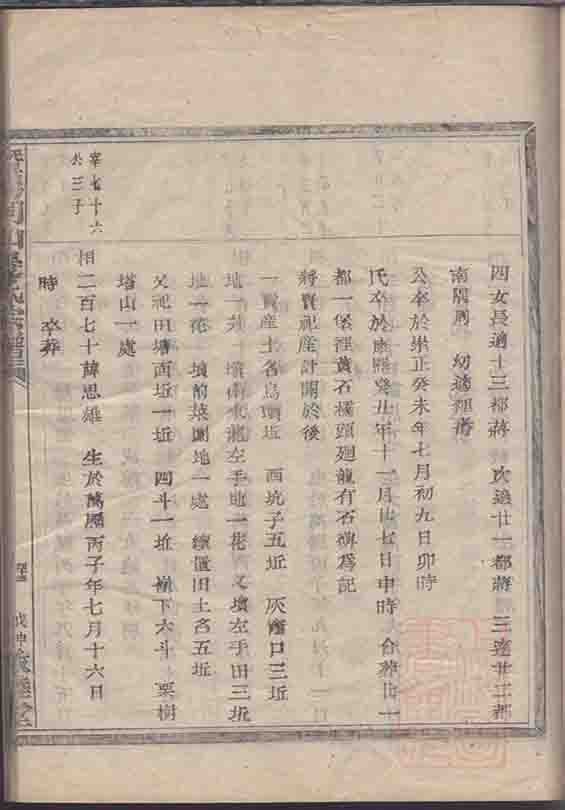 四女長適十三都蔣 次適廿一都蔣 三適廿二都
南隅周 幼適裡蔣
公卒於崇正癸未年七月初九日卯時
氏卒於康熙癸丑年十一月廿七日申時 合葬廿一
都一堡裡黃石橋頭廻龍有石碑為記
將賣祀產計開於後
一賣產土名烏頭坵 西坑子五坵 灰窰口三坵
地一片 墳南水碓左手地一花 又墳左手田三坵
地一花 墳前菜園地一處 舊土名五坵
父祀田塘面坵一坵 四斗一坵 嶺下六斗 栗樹
塔山一處
宰七十六
公三子
相二百七十諱思雄 生於萬曆丙子年七月十六日
時 卒葬
戊申